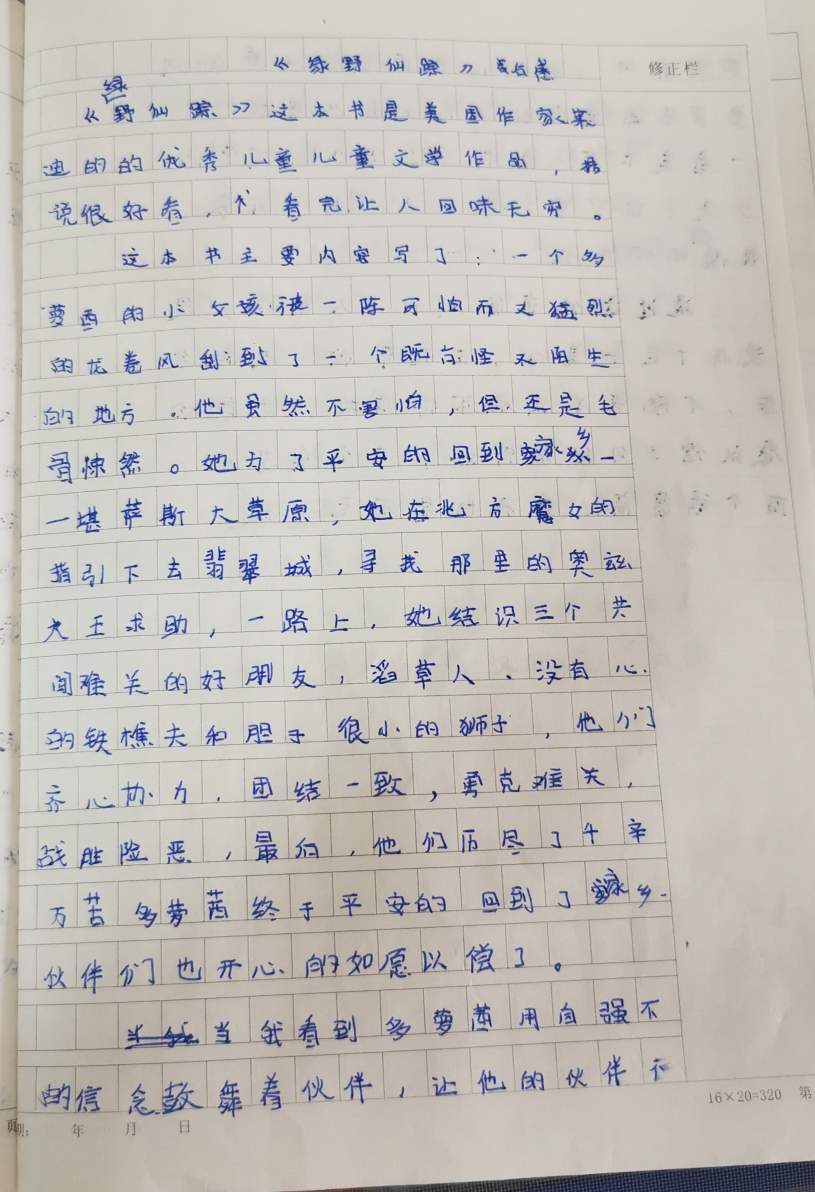 《绿野仙踪》读后感
修正栏
《绿野仙踪》这本书是美国作家莱
迪的的优秀儿童儿童文学作品，据
说很好看，看完让人回味无穷。
这本书主要内容写了：一个多
萝西的小女孩被一阵可怕而又猛烈
的龙卷风刮到了一个既奇怪又陌生
的地方。他虽然不害怕，但还是毛
骨悚然。她为了平安的回到家乡一
一堪萨斯大草原，她在北方魔女的
指引下去翡翠城，寻找那里的奥兹
大王求助，一路上，她结识三个共
闯难关的好朋友，稻草人、没有心
的铁樵夫和胆子很小的狮子，他们
齐心协力，团结一致，勇克难关，
战胜险恶，最后，他们历尽了千辛
万苦多萝茜终于平安的回到了家乡
伙伴们也开心的如愿以偿了。
当我看到多萝茜用自强不
的信念鼓舞着伙伴，让他的伙伴
16×20=320 第
期： 年 月 日